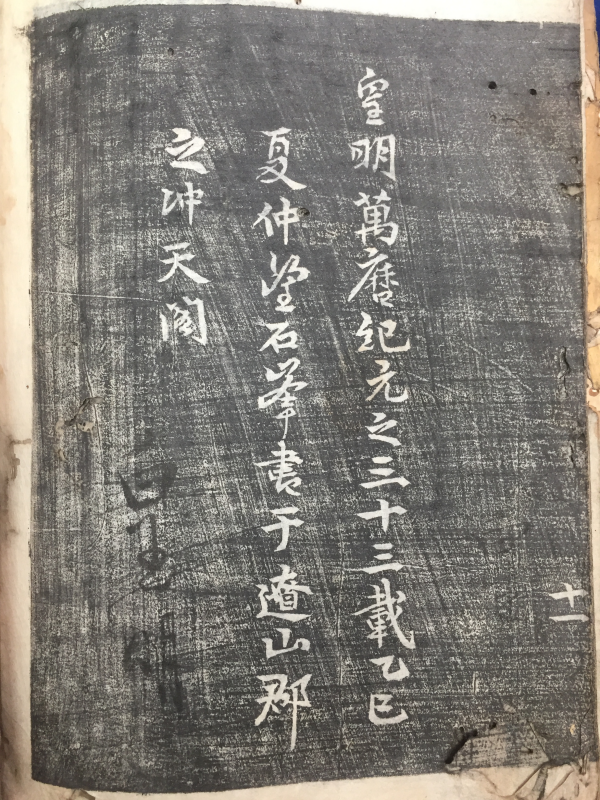 十一
皇明萬曆紀元之三十三載乙巳
夏仲望石峯書于遼山郡
之冲天閣
皇明